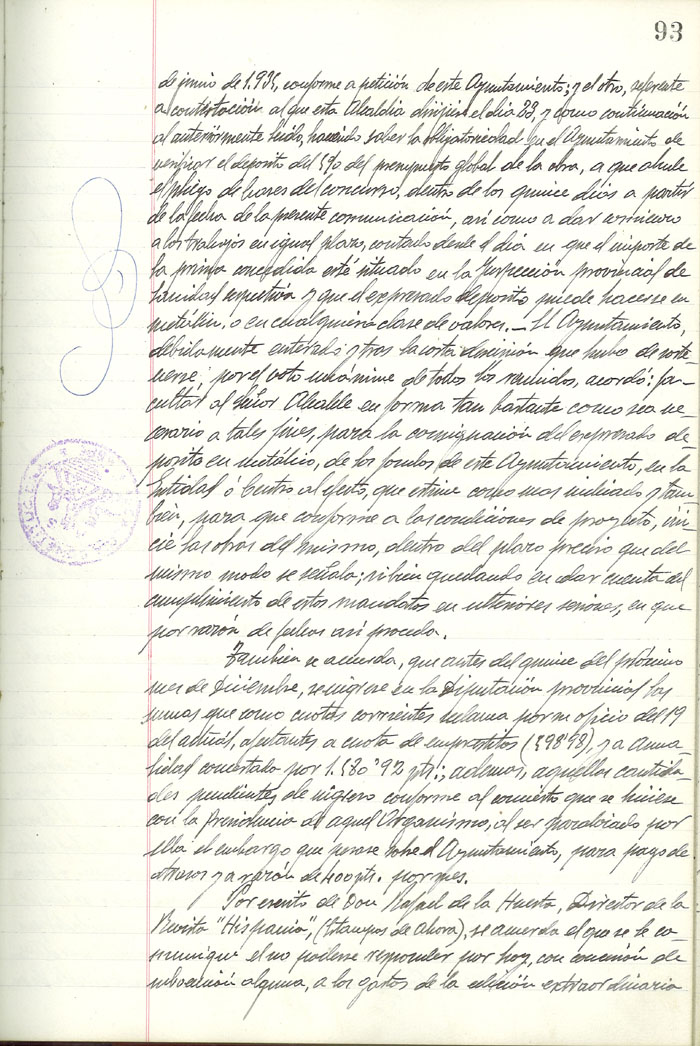 93
de junio de 1.935, conforme a petición de este Ayuntamiento; y el otro, referente
a contestación al que esta Alcaldía dirijiera el día 23, y como continuación
al anteriormente leido, haciendo saber la obligatoriedad en el Ayuntamiento de
verificar el deposito del 5% del presupuesto global de la obra, a que alude
el pliego de bases del concurso, dentro de los quince días a partir
de la fecha de la presente comunicación, así como a dar comienzo
a los trabajos en igual plazo, contado desde el día en que el importe de
la prima concedida esté situado en la Inspección provincial de
Sanidad respectiva y que el expresado deposito puede hacerse en
metálico, o en cualquiera clase de valores. — El Ayuntamiento,
debidamente enterado y tras la corta discusión que hubo de sos-
tenerse, por el voto unánime de todos los reunidos, acordó: fa-
cultar al señor Alcalde en forma tan bastante como sea ne-
cesario a tales fines, para la consignación del expresado de-
posito en metálico, de los fondos de este Ayuntamiento, en la
Entidad ó Centro al efecto, que estime como mas indicado y tam-
bién, para que conforme a las condiciones de proyecto, ini-
cie las obras del mismo, dentro del plazo preciso que del
mismo modo se señala; si bien quedando en dar cuenta del
cumplimiento de estos mandatos en ulteriores sesiones, en que
por razón de fechas así proceda.
También se acuerda, que antes del quince del próximo
mes de Diciembre, se ingrese en la Diputación provincial las
sumas que como cuotas corrientes reclama por su oficio del 19
del actual, afectantes a cuota de empréstitos (598'98), y a anua-
lidad concertada por 1.580'92 pts.; ademas, aquellas cantida-
des pendientes de ingreso conforme al concierto que se hiciese
con la Presidencia de aquel Organismo, al ser paralizado por
ella el embargo que pesase sobre el Ayuntamiento, para pago de
atrasos y a razón de 400 pts. por mes.
Por escrito de Don Rafael de la Huerta, Director de la
Revista "Hispania", (Estampas de Ahora), se acuerda el que se le co-
munique el no poderse responder por hoy, con concesión de
subvención alguna, a los gastos de la edición extraordinaria